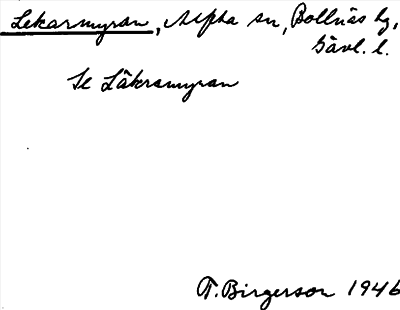 Lekarmyran, Alfta sn, Bollnäs kg,
Gävl. l.
Se Läkramyran
T. Birgerson 1946